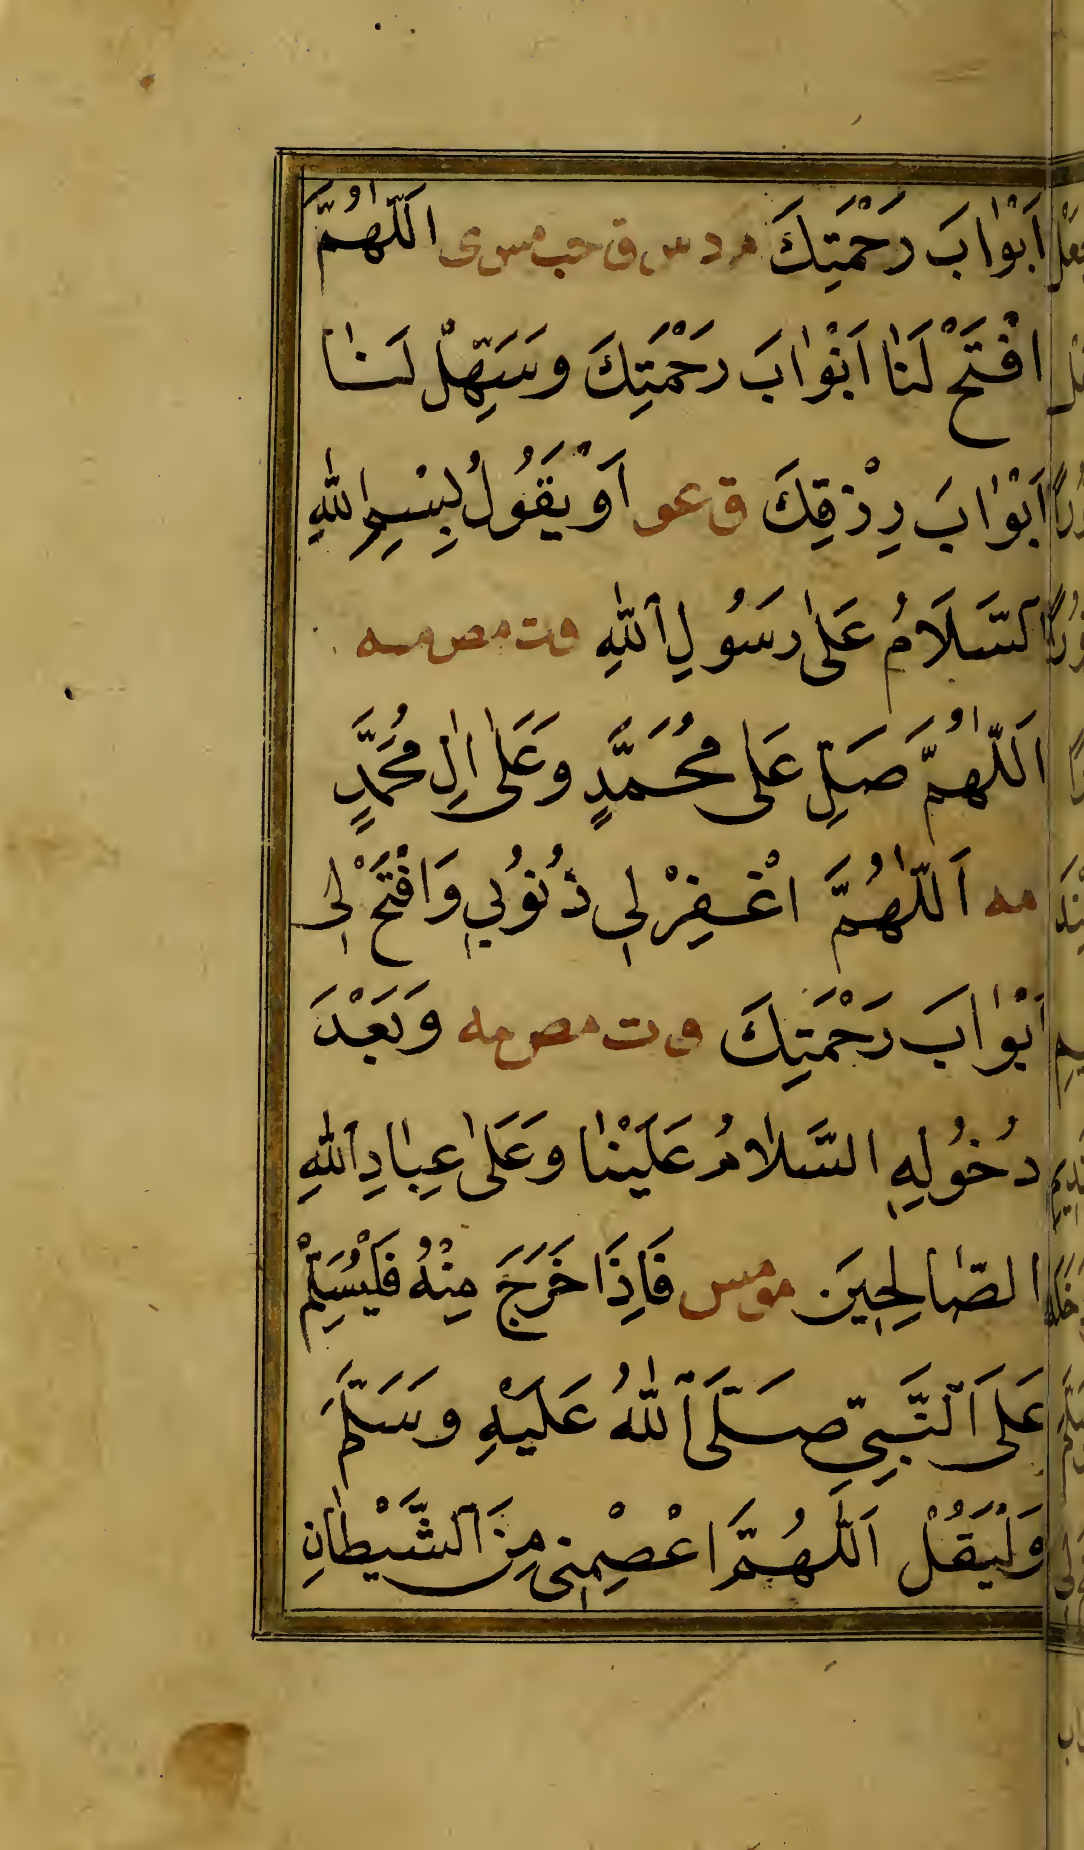 اَبْوٰابَ رَحْمَتِكَ م د س ق حب مس ى اَللّٰهُمَّ
افْتَحْ لَنٰا اَبْوٰابَ رَحْمَتِكَ وَسَهِّلْ لَنٰا
اَبْوٰابَ رِزْقِكَ ق عو اَوْ يَقُولُ بِسْمِ اللّٰهِ
اَلسَّلَامُ عَلىٰ رَسُولِ اللّٰهِ ق ت مص مه
اَللّٰهُمَّ صَلِّ عَلى مُحَمَّدٍ وَعَلىٰ اٰلِ مُحَمَّدٍ
مه اَللّٰهُمَّ اغْفِرْ لِى ذُنُوبِي وَافْتَحْ لِى
اَبْوٰابَ رَحْمَتِكَ ق ت مص مه وَبَعْدَ
دُخُولِهِ السَّلاٰمُ عَلَيْنٰا وَعَلىٰ عِبٰادِ اللّٰهِ
الصّٰالِحِينَ مو مس فَاِذَا خَرَجَ مِنْهُ فَلْيُسَلِّمْ
عَلَى النَّبِيِّ صَلَّى اللّٰهُ عَلَيْهِ وَسَلَّمَ
وَلْيَقُلْ اَللّٰهُمَّ اعْصِمْنِى مِنَ الشَّيْطٰانِ